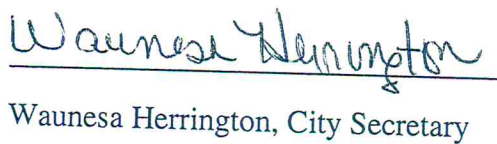 Waunesa Herrington
Waunesa Herrington, City Secretary